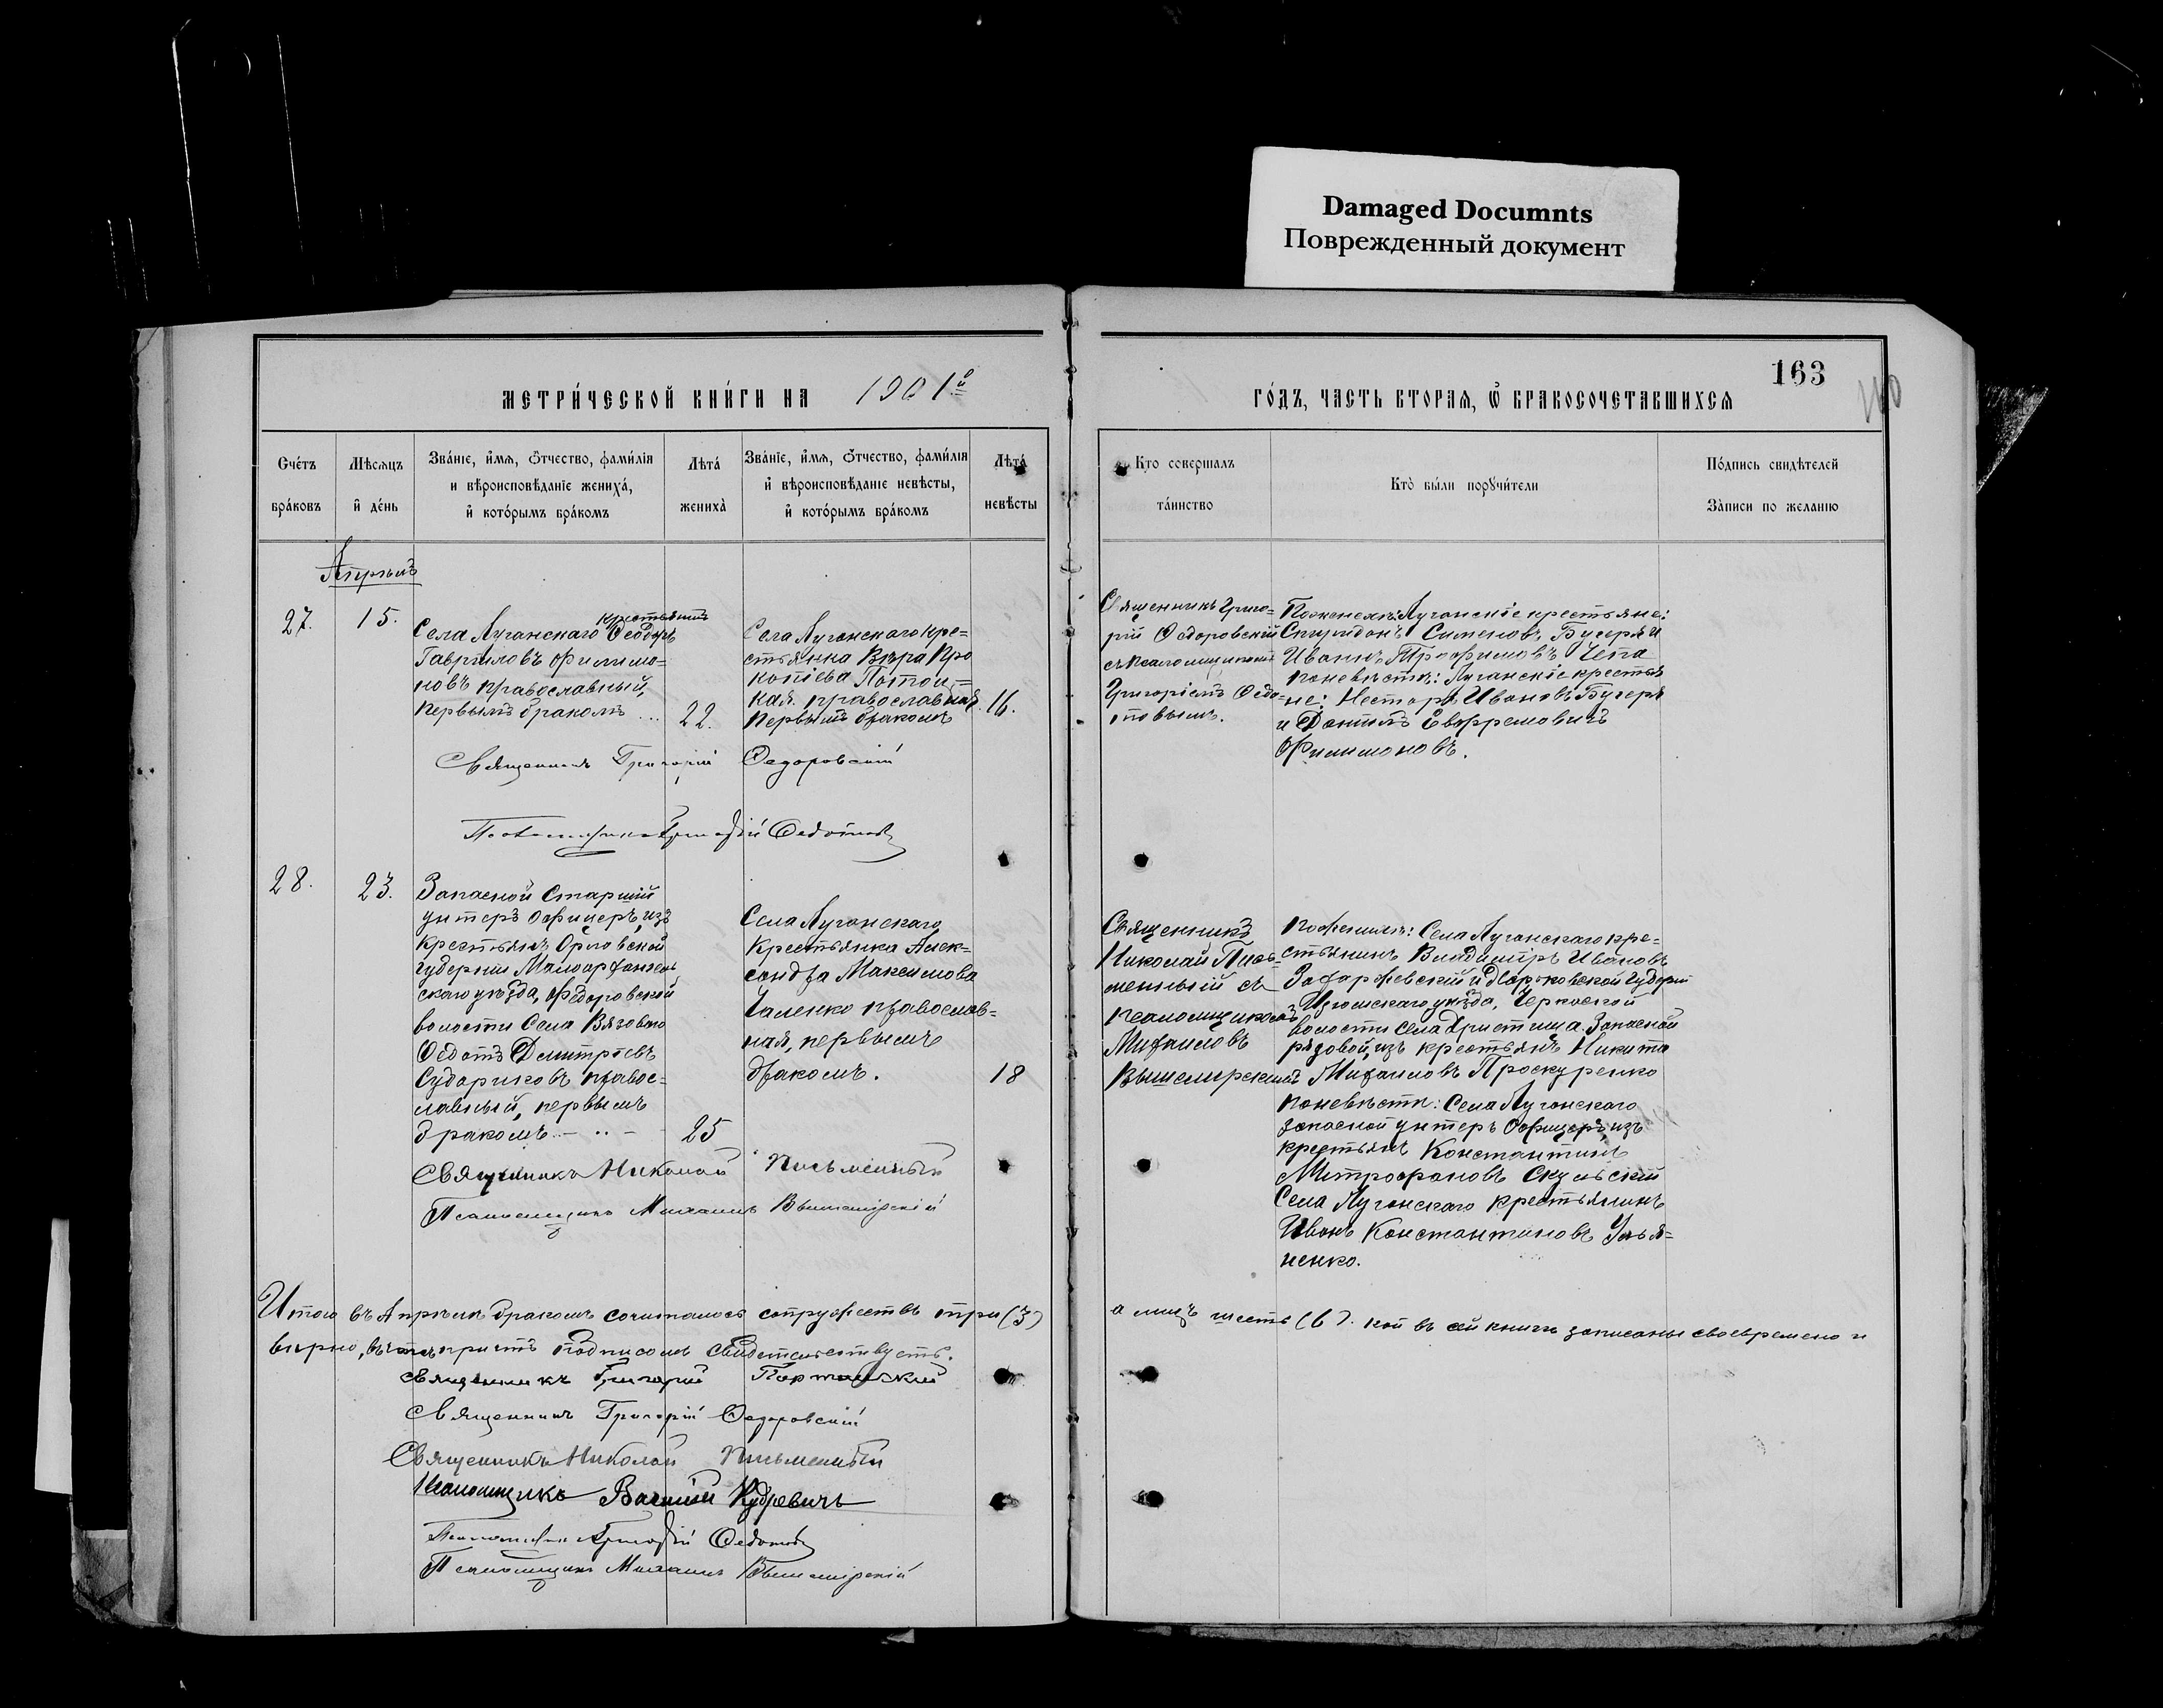 Damaged Documnts
Поврежденный документ
163
МЕТРИ́ЧЕСКОЙ КНИ́ГИ НА 1901й
ГО́ДЪ, ЧАСТЬ ВТОРАЯ, Ѽ БРАКОСОЧЕТАВШИХСЯ
Сче́тъ
бра́ковъ
Мѣсяцъ
и де́нь
Зва́нїе, и҆́мя, Ѻтчество, фами́лїя
и вѣроисповѣданїе жениха́,
и҆ кото́рымъ бра́комъ
Лѣта́
жениха̀
Зва́нїе, и҆́мя, Ѻтчество, фами́лїя
и҆ вѣроисповѣданїе невѣсты,
и҆ кото́рымъ бра́комъ
Лѣта́
невѣсты
Кто совершалъ
та́инство
Кто̀ бы́ли порꙋчи́тели
По́дпись свидѣтелей
За̀писи по желанїю
Апрѣль
27.
15.
крестьянинъ
Села Луганскаго Ѳеодоръ
Гавриловъ Филимо=
новъ православный,
первымъ бракомъ ...
22.
Села Луганскаго кре=
стьянка Вѣра Про
копіева
кая. православная.
первымъ бракомъ
16.
Священникъ Григо=
рій Ѳедоровскій
съ псаломщикомъ
Григоріемъ Ѳедо=
товымъ.
По женихѣ: Луганскіе крестьяне:
Спиридонъ Симеоновъ и
Иванъ Трофимовъ Чепа
по невѣстѣ: Луганскіе крестья
не: Несторъ Ивановъ
и Даніилъ Евфремовичъ
Филимоновъ.
Священникъ Григорій Ѳедоровскій
Псаломщикъ Григорій Ѳедотовъ
28.
23.
Запасной Старшій
унтеръ офицеръ, изъ
крестьянъ Орловской
губерніи Малоархангель
скаго уѣзда, Федоровской
волости Села Вязоваго
Ѳедотъ Димитріевъ
Судариковъ правос=
лавный, первымъ
бракомъ - .. -
25
Села Луганскаго
Крестьянка Алек=
сандра Максимова
Чаленко православ=
ная, первымъ
бракомъ.
18
Священникъ
Николай Пись=
менный съ
псаломщикомъ
Михаиловъ
Вышемірскимъ
По женихѣ: Села Луганскаго кре=
стьянинъ Владиміръ Ивановъ
и Харьковской губерніи
Изюмскаго уѣзда, Черкаской
волости села Христища Запасной
рядовой, изъ крестьянъ Никита
Михаиловъ Проскуренко
по невѣстѣ: Села Луганскаго
запасной унтеръ Офицеръ, изъ
крестьянъ Константинъ
Митрофановъ Скульскій
Села Луганскаго крестьянинъ
Иванъ Константиновъ Улья=
ненко.
Священникъ Николай Письменный
Псаломщикъ Михаилъ Вышемірскій
Итого въ Апрѣлѣ бракомъ сочиталось супружествъ три (3)
а лицъ шесть (6). кои въ сей книгѣ записаны своевремено и
вѣрно, въ чемъ причтъ подписомъ свидѣтельствуетъ.
Священникъ Григорій
Священникъ Григорій Ѳедоровскій
Священникъ Николай Письменный
Псаломщикъ Василій Кудревичъ
Псаломщикъ Григорій Ѳедотовъ
Псаломщикъ Михаилъ Вышемірскій